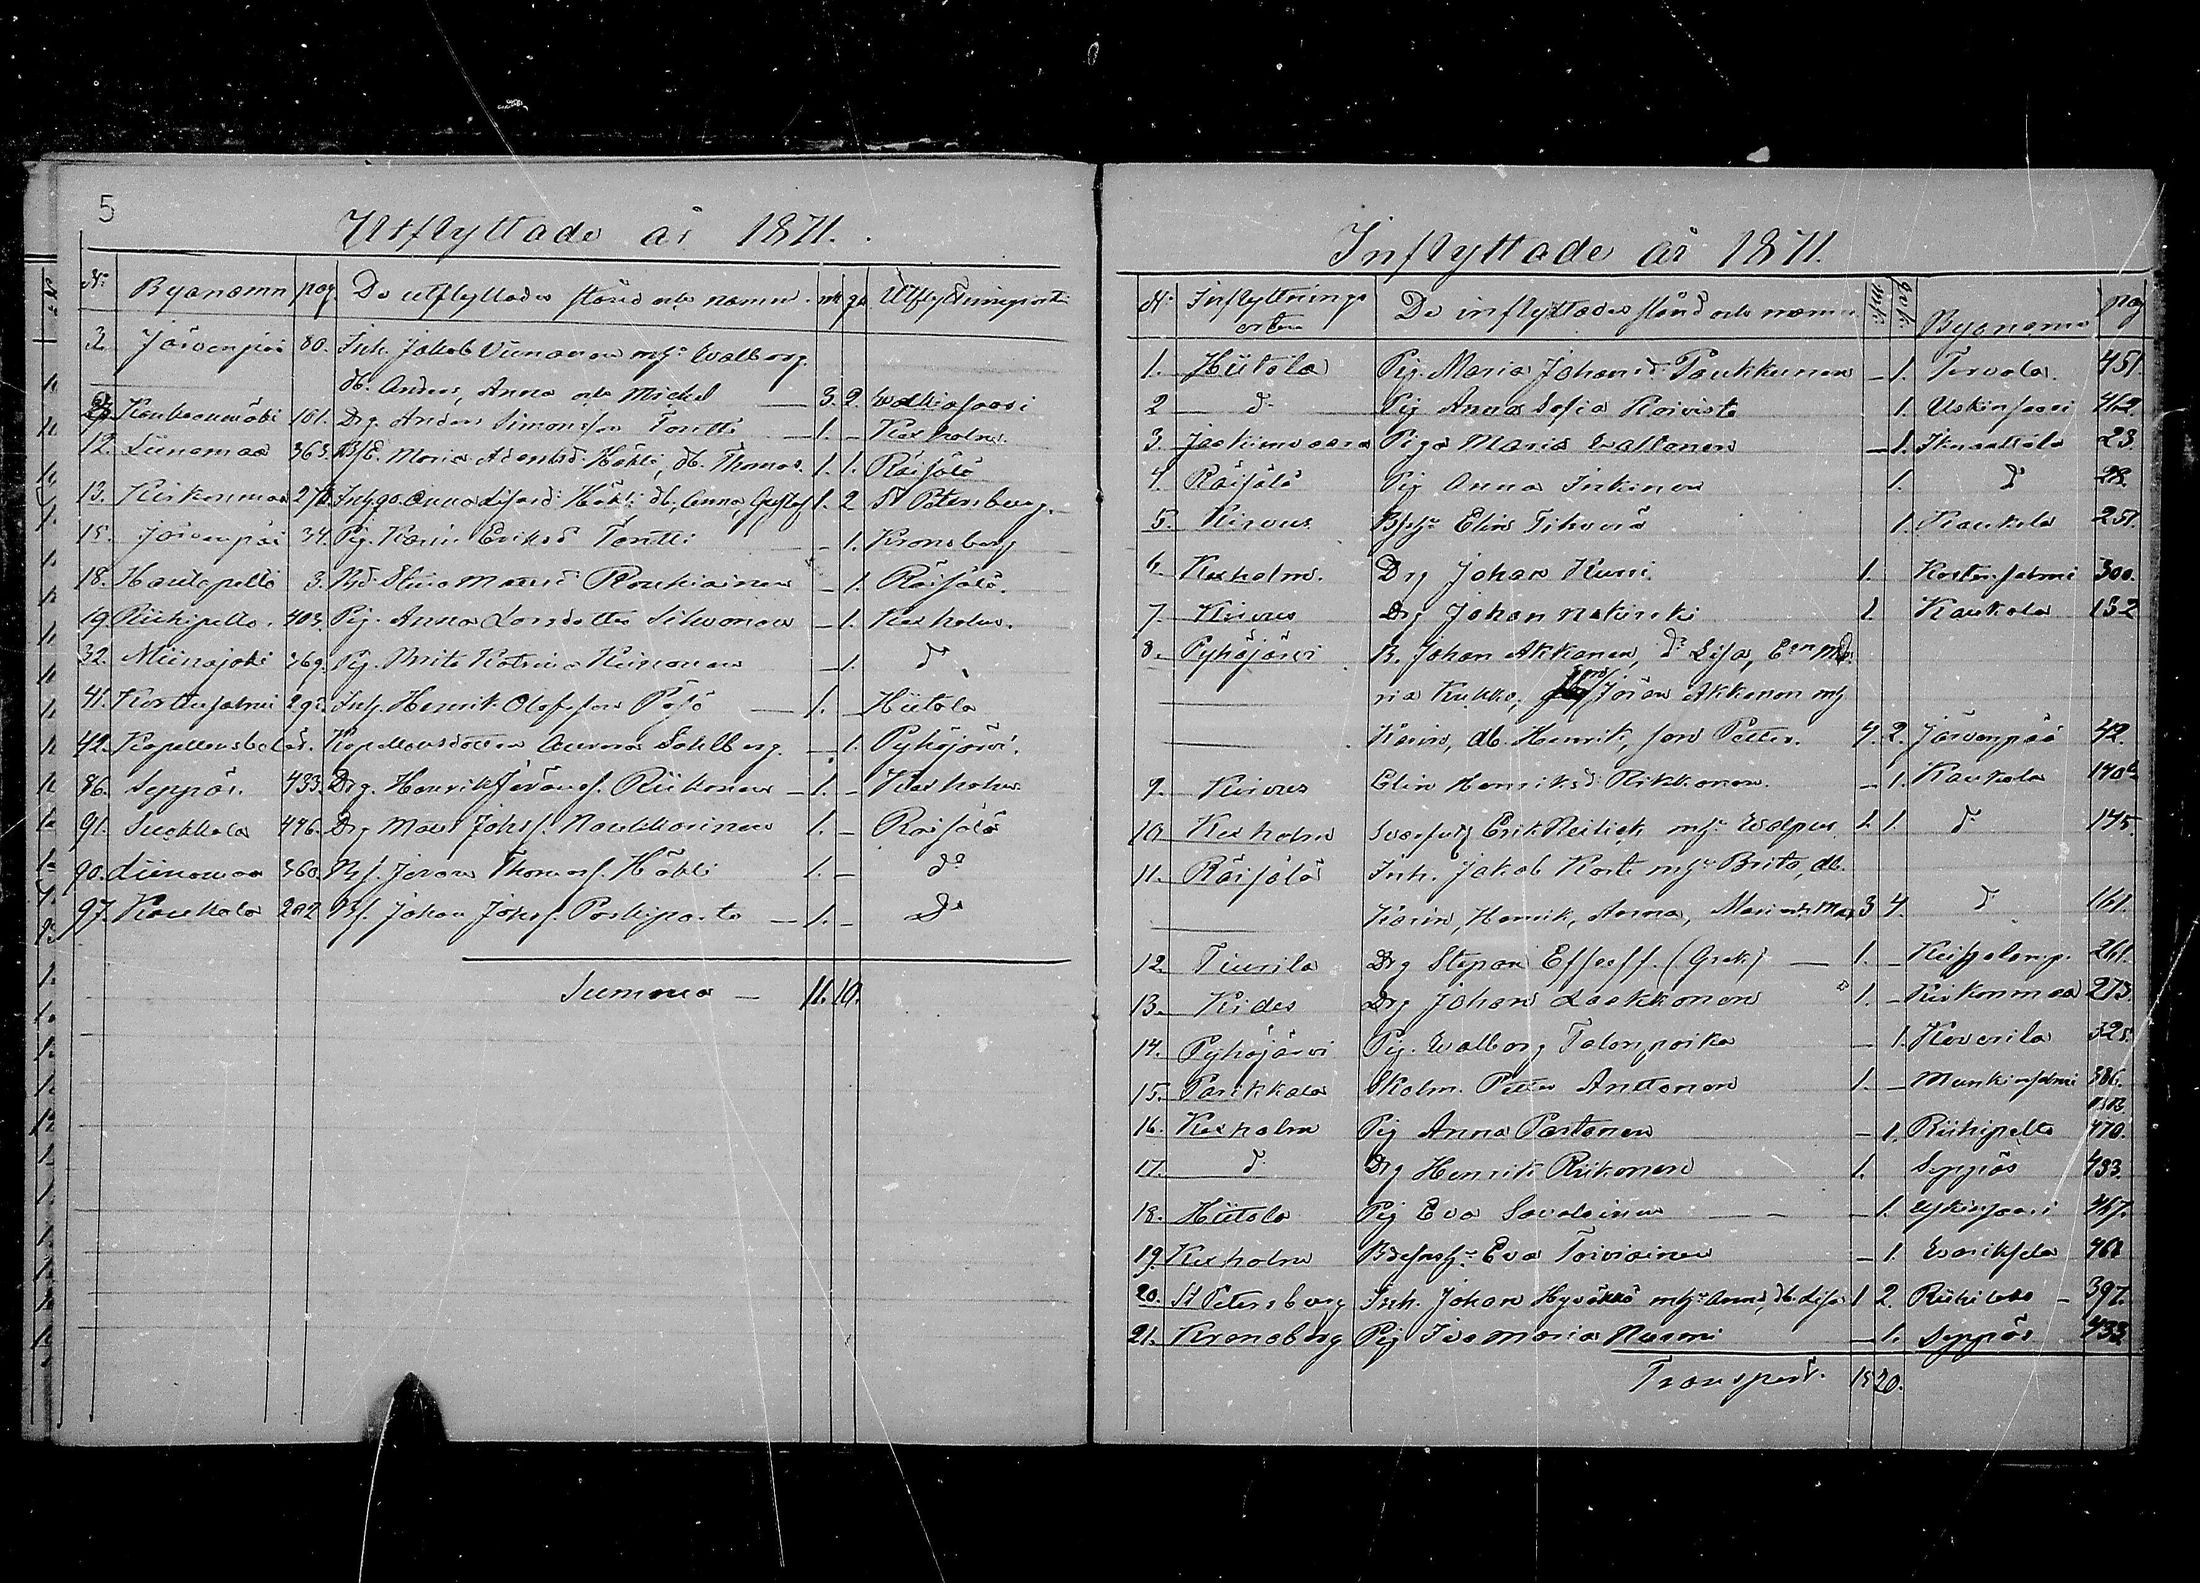 5
Utflyttade år 1871.
No Byanamn pag. De utflyttades stånd och namn. mk. qk. Utflyttningsort
3. Järvenpää 80. Inh. Jakob mhu Walborg.
db. Anders, Anna och Michel 3. 2. Walkjasaari
101. Drg. Anders Simonsson Tontti 1. – Kexholm.
12. Liinamaa 363. Maria Adamsd. Häkli, db. Thomas. 1. 1. Räisälä
13. Kiiskonmaa Anna Häkli db. Anna, Gustaf 1. 2 St Petersburg.
15. Järvenpää 34. Pig. Karin Eriksd Tontti – 1. Kronoborg
18. Hautapelto 3. Stina Matsd Roukiainen – 1. Räisälä.
19. Riihipelto. 403. Pig. Anna Larsdotter Sihvonen – 1. Kexholm.
32. Miinajoki 369. Pig. Brita Katrina Kiinanen – 1. do
41. Kortensalmi 295. Inh. Henrik Olofsson Pösö – 1. – Hiitola
42. Kapellansbol Kapellansdottren Aurora Sahlberg. – 1. Pyhäjärvi.
86. Seppäs. 433. Drg. Henrik Jöransf. Riikonen – 1. – Kexholm.
91. Suokkala 446. Drg Mats Johsf. Naukkarinen 1. – Räisälä
90. Liinamaa 360. Bsf. Jöran Thomasf. Häkli 1. – do
97. Kaukola 202 Bsf. Johan Johsf. Poskiparta – 1. – Do
Summa – 11. 10.
Inflyttade år 1871.
No Inflyttnings De inflyttades stånd och namn mk. qvk. Byanamn pag
orten
1. Hiitola Pig. Maria Johansd. Paukkunen – 1. Tervola. 451.
2 do Pig Anna Sofia Koivisto 1. Uskinsaari 462.
3. Jaakimvaara Piga Maria Waltonen – 1. 23.
4. Räisälä Pig Anna Inkinen 1. do 28.
5. Kirvus Bshu Elin Tihverä 1. Kaukola 251.
6. Kexholm. Drg Johan Kurri. 1. Kortensalmi 300.
7. Kirvus Drg Johan 1. Kaukola 132
8. Pyhäjärvi B. Johan Akkanen, do Lisa, Ma-
ria Kukko, Jöran Akkanen mh
Karin, db. Henrik, son Petter. 4. 2. Järvenpää 42.
9. Kirvus Elin Henriksd. Rikkonen. – 1. Kaukola 140
10. Kexholm Erik mhu Walpur 1. 1. do 145.
11. Räisälä Inh. Jakob Korte mhu Brita, db.
Karin, Henrik, Anna, Maria och 3 4. do 161.
12. Tiurila Drg Stepan Effseff. (Grek.) – 1. – 261.
13. Kides Drg Johan Laakkonen 1. – Kiiskonmaa 273.
14. Pyhäjärvi Pig. Walborg Talonpoika – 1. Koverila 325.
15. Parikkala Skolm. Petter Anttonen 1. – Munkinsalmi 386.
16. Kexholm Pig Anna Partanen – 1. Riihipelto 410.
17. do Drg Henrik Riikonen 1. Seppäs 433.
18. Hiitola Pig Eva Savolainen – 1. Uskinsaari 467.
19. Kexholm Eva Toiviainen – 1. 461
20. St Petersburg Inh. Johan Hyvökkö mhu Anna, db. Lisa 1 2. – 397.
21. Kronoborg Pig Iva Maria Nurmi – 1. Seppäs 433.
Transport. 15 20.